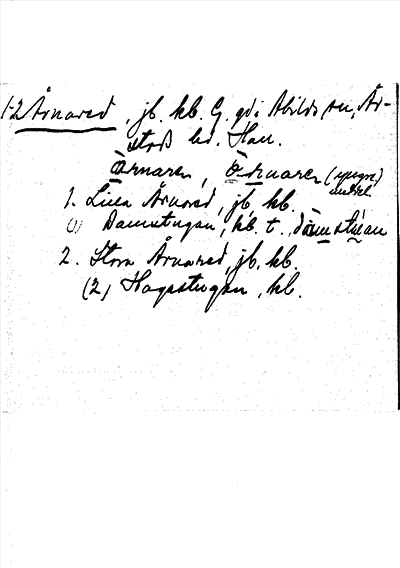 1-2 Årnared, jb. kb. G. gd i Abilds sn, År-
stads hd. Hall.
Årnaren, Årnaren
1. Lilla Årnared, jb. kb.
(1) Dammstugan, kb. t.
2. Stora Årnared, jb. kb.
(2) Hagastugan, kb.